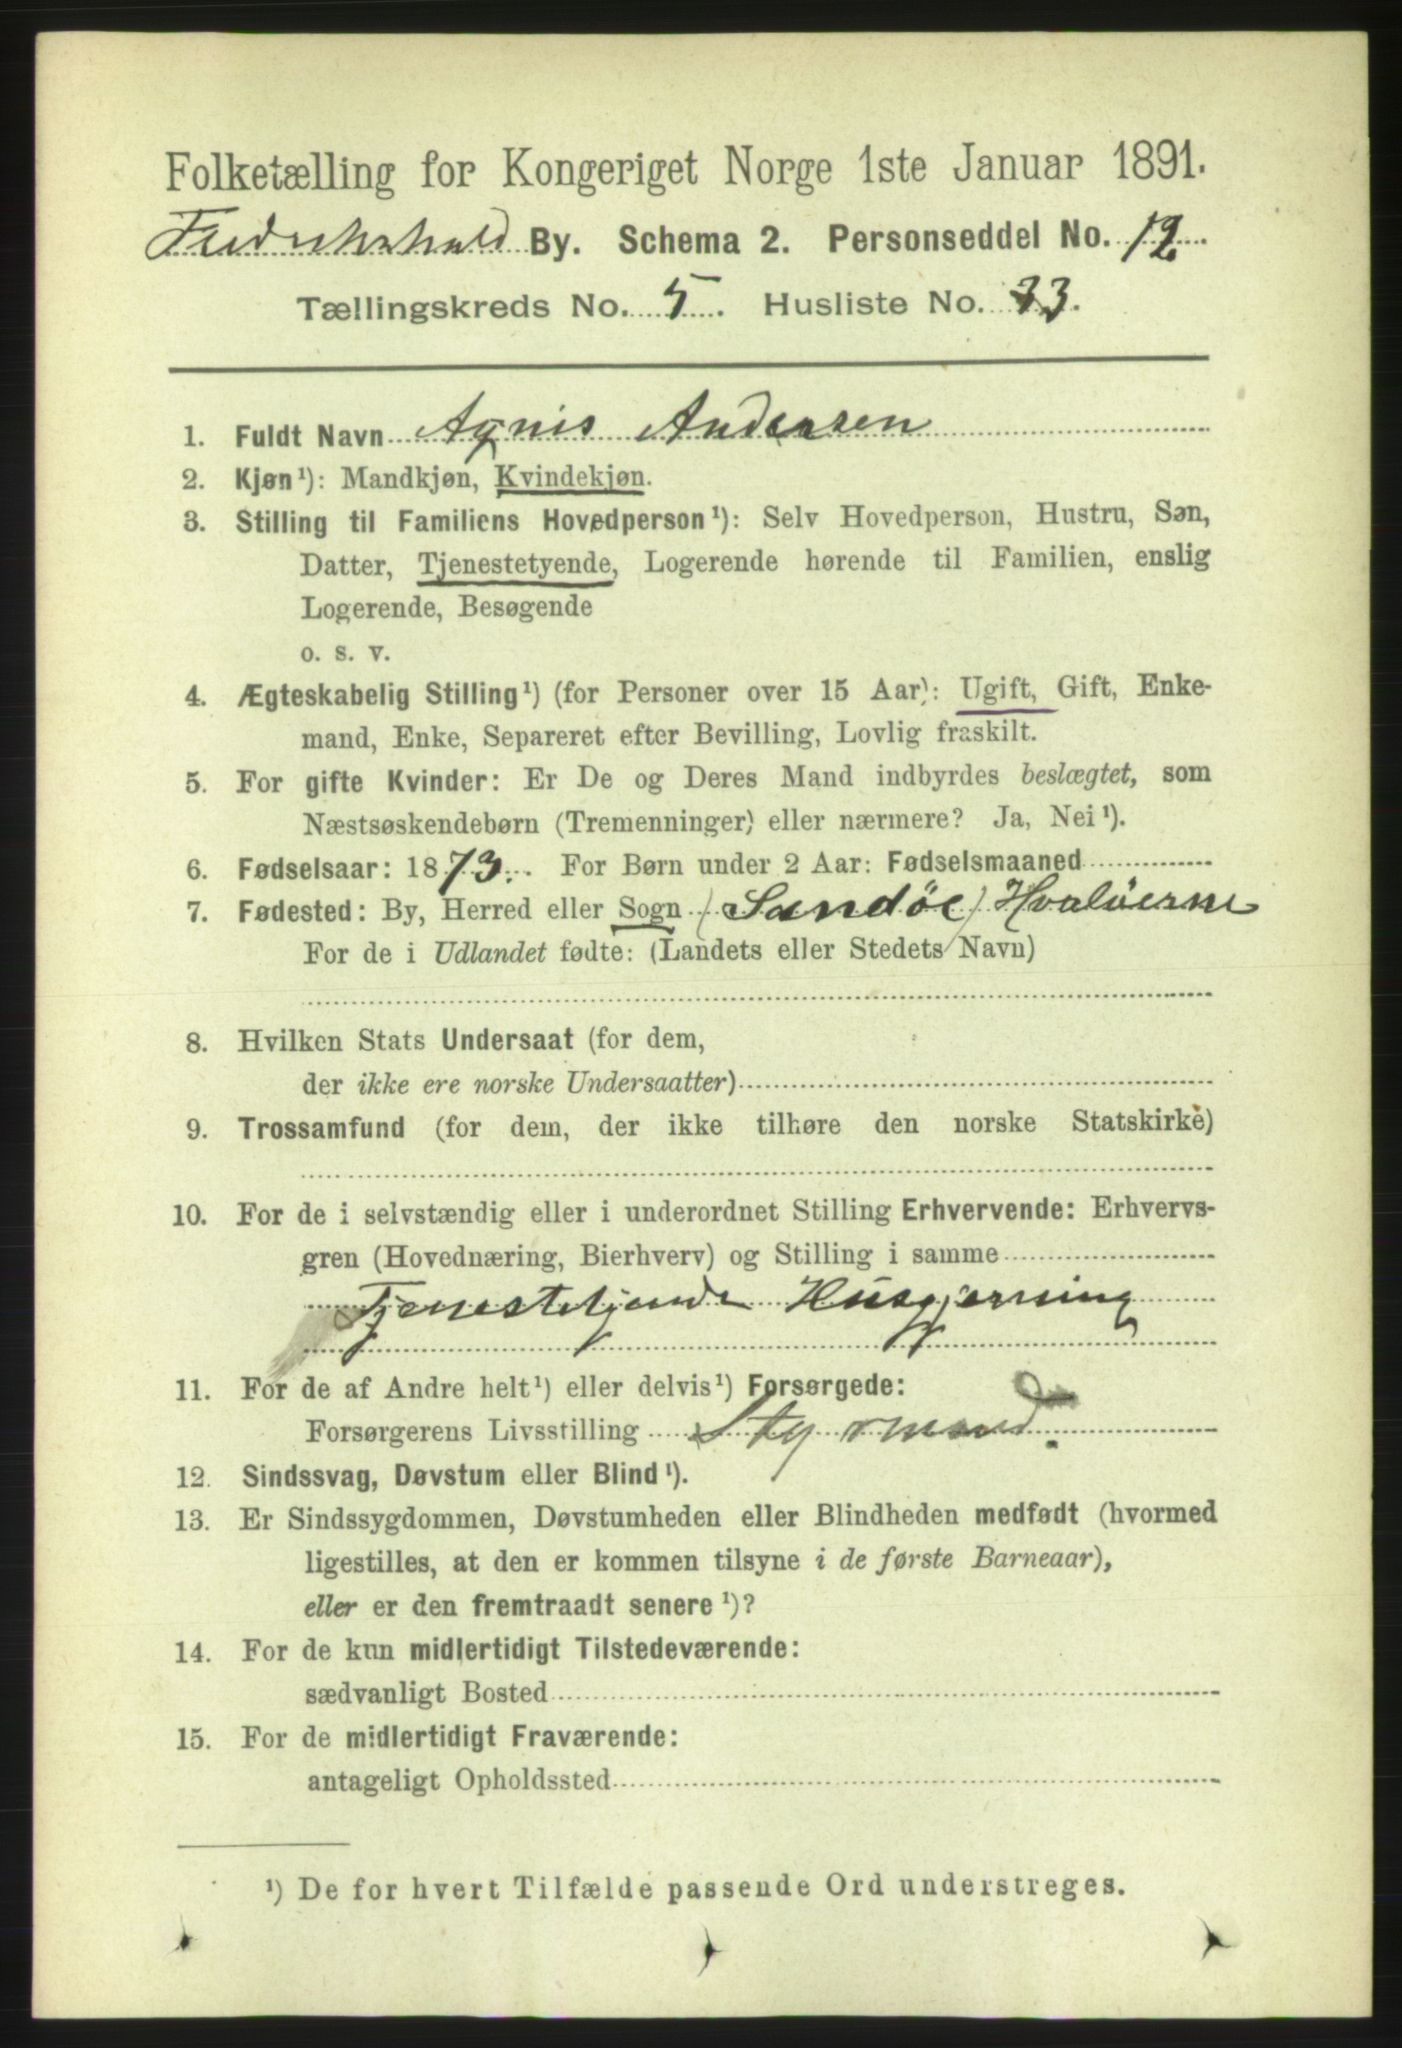 Folketælling for Kongeriget Norge 1ste Januar 1891.
Fredrikshald By. Schema 2. Personseddel No. 12
Tællingskreds No. 5. Husliste No. 33.
1. Fuldt Navn Agnis Andersen
2. Kjøn¹): Mandkjøn, Kvindekjøn.
3. Stilling til Familiens Hovedperson¹): Selv Hovedperson, Hustru, Søn,
Datter, Tjenestetyende, Logerende hørende til Familien, enslig
Logerende, Besøgende
o. s. v.
4. Ægteskabelig Stilling¹) (for Personer over 15 Aar): Ugift, Gift, Enke-
mand, Enke, Separeret efter Bevilling, Lovlig fraskilt.
5. For gifte Kvinder: Er De og Deres Mand indbyrdes beslægtet, som
Næstsøskendebørn (Tremenninger) eller nærmere? Ja, Nei¹).
6. Fødselsaar: 1873. For Børn under 2 Aar: Fødselsmaaned
7. Fødested: By, Herred eller Sogn (Sandöe) Hvalöerne
For de i Udlandet fødte: (Landets eller Stedets Navn)
8. Hvilken Stats Undersaat (for dem,
der ikke ere norske Undersaatter)
9. Trossamfund (for dem, der ikke tilhøre den norske Statskirke)
10. For de i selvstændig eller i underordnet Stilling Erhvervende: Erhvervs-
gren (Hovednæring, Bierhverv) og Stilling i samme
Tjenestetjende Husgjerning
11. For de af Andre helt¹) eller delvis¹) Forsørgede:
Forsørgerens Livsstilling Styrmand.
12. Sindssvag, Døvstum eller Blind¹).
13. Er Sindssygdommen, Døvstumheden eller Blindheden medfødt (hvormed
ligestilles, at den er kommen tilsyne i de første Barneaar),
eller er den fremtraadt senere¹)?
14. For de kun midlertidigt Tilstedeværende:
sædvanligt Bosted
15. For de midlertidigt Fraværende:
antageligt Opholdssted
¹) De for hvert Tilfælde passende Ord understreges.